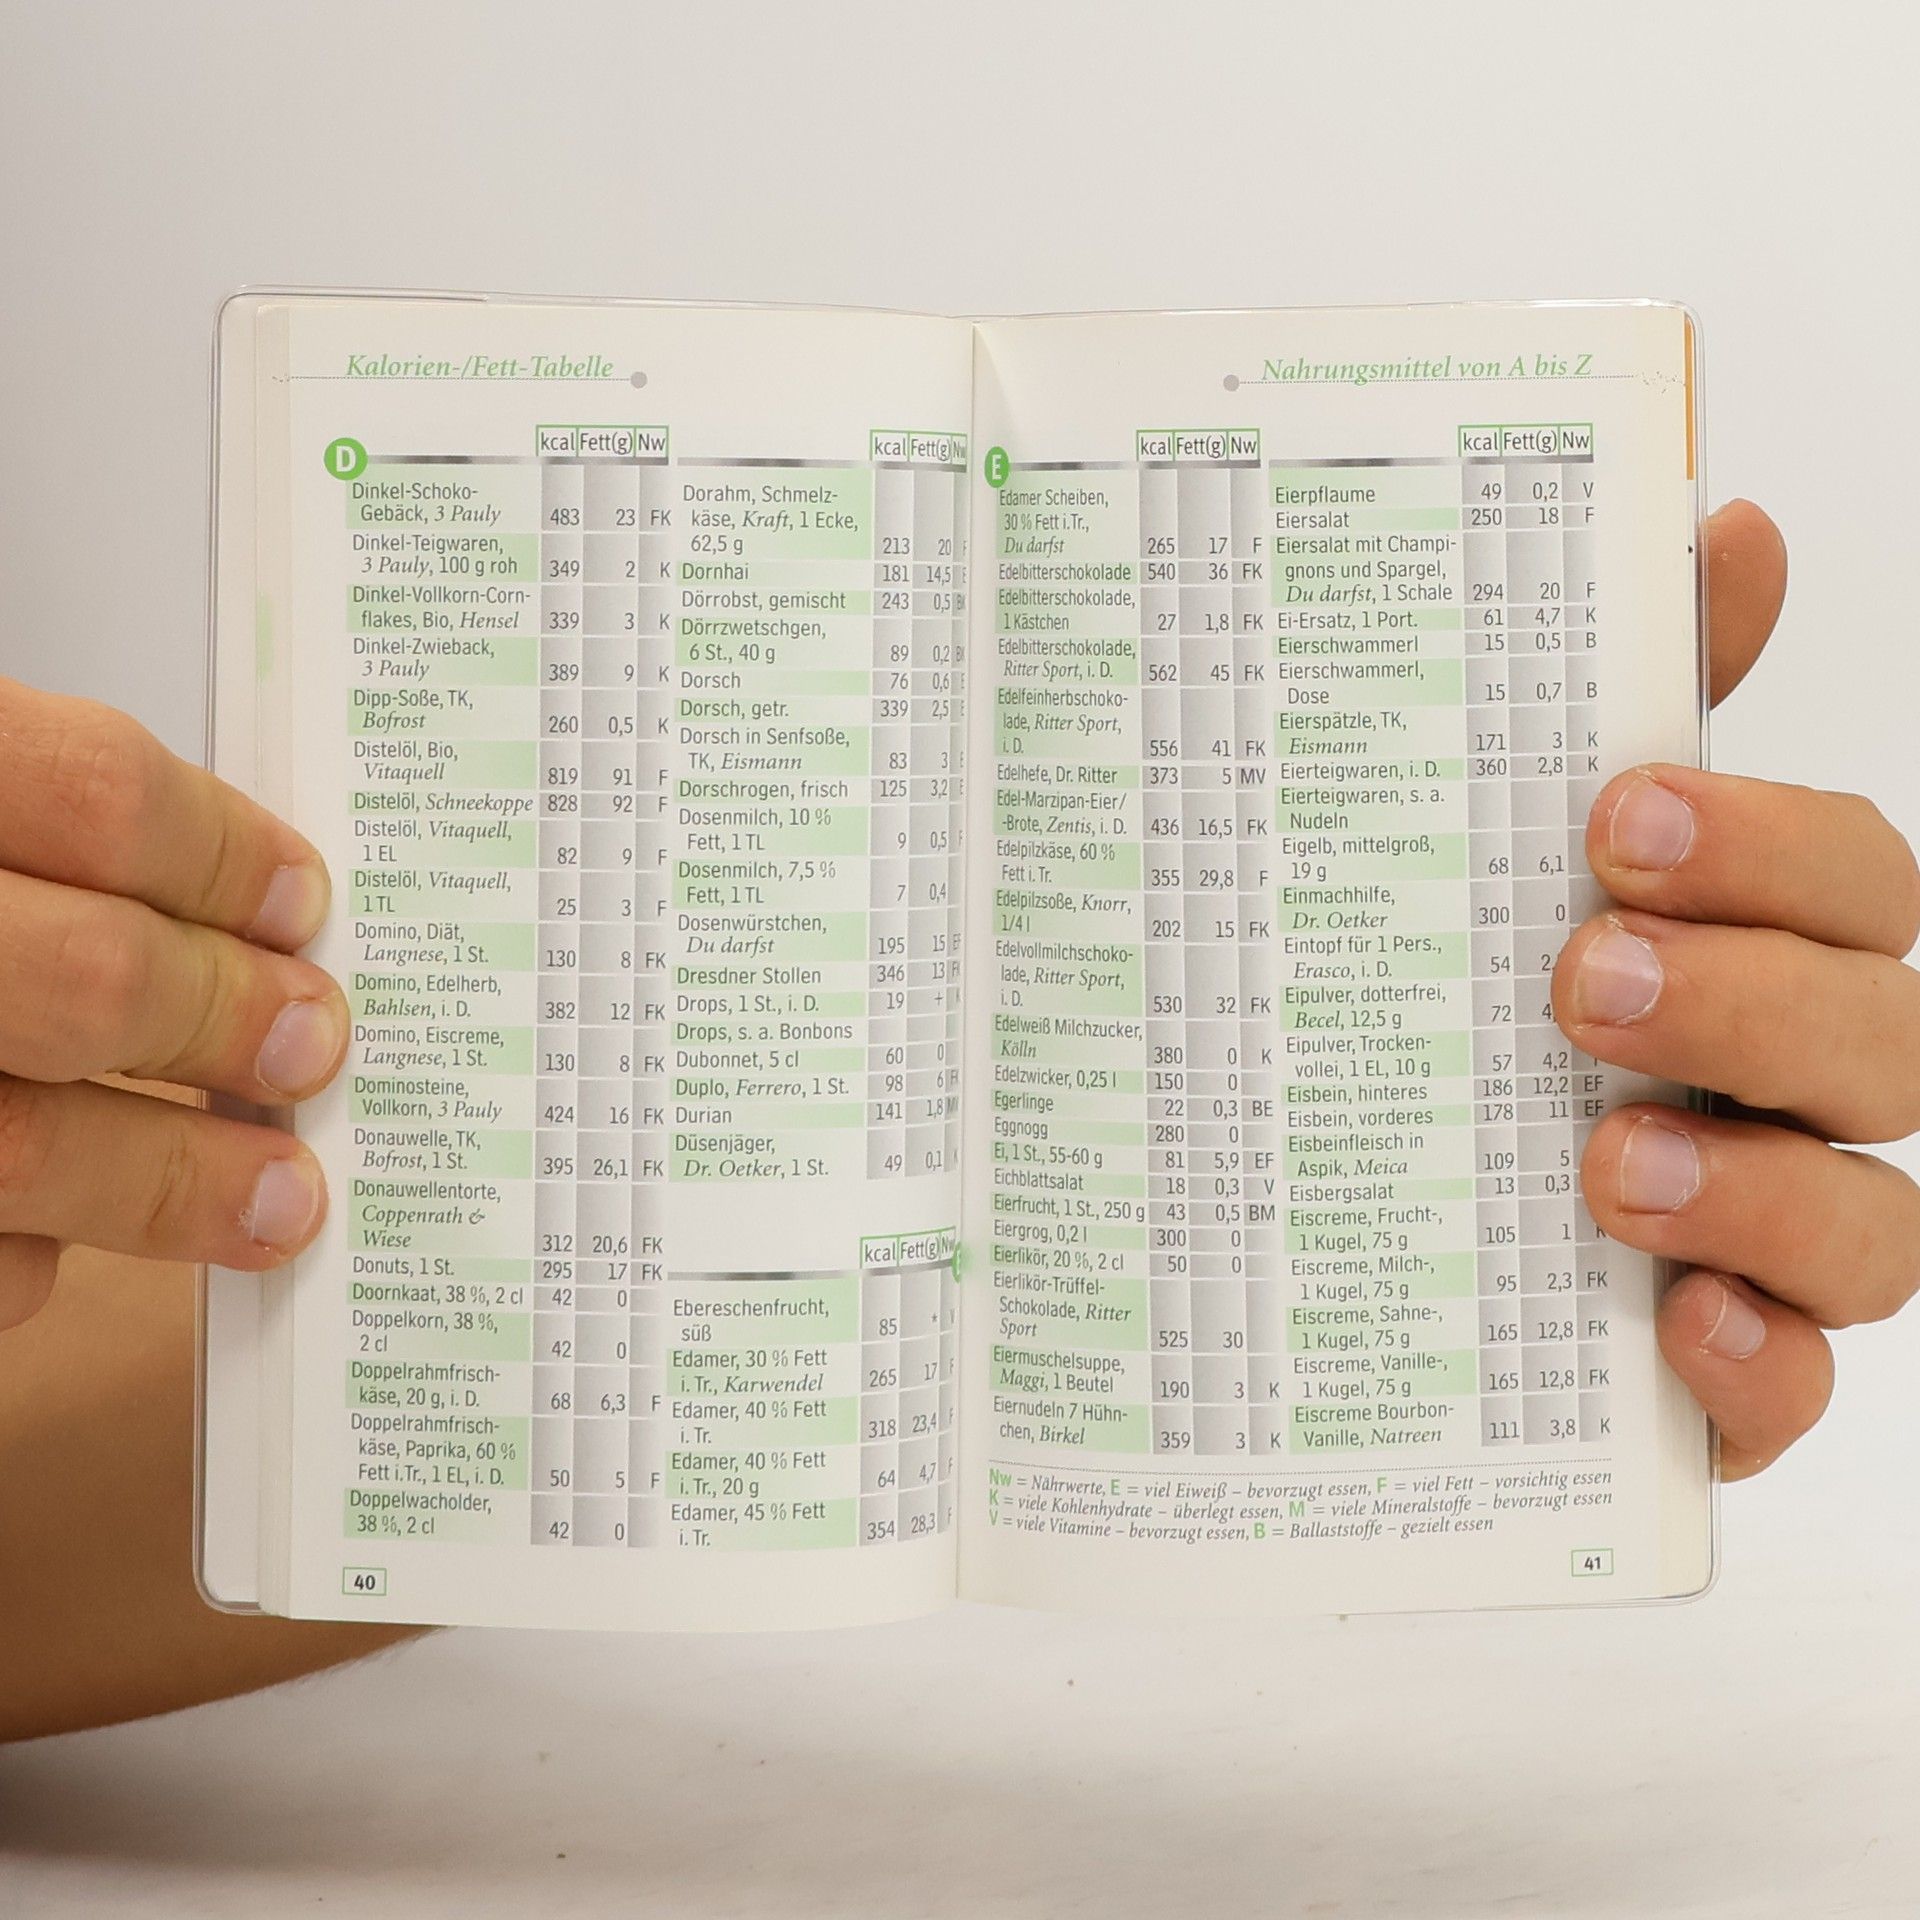 Kalorien-/Fett-Tabelle
D
kcal Fett(g) Nw
Dinkel-Schoko-
Gebäck, 3 Pauly 483 23 FK
Dinkel-Teigwaren,
3 Pauly, 100 g roh 349 2 K
Dinkel-Vollkorn-Corn-
flakes, Bio, Hensel 339 3 K
Dinkel-Zwieback,
3 Pauly 389 9 K
Dipp-Soße, TK,
Bofrost 260 0,5 K
Distelöl, Bio,
Vitaquell 819 91 F
Distelöl, Schneekoppe 828 92 F
Distelöl, Vitaquell,
1 EL 82 9 F
Distelöl, Vitaquell,
1 TL 25 3 F
Domino, Diät,
Langnese, 1 St. 130 8 FK
Domino, Edelherb,
Bahlsen, i. D. 382 12 FK
Domino, Eiscreme,
Langnese, 1 St. 130 8 FK
Dominosteine,
Vollkorn, 3 Pauly 424 16 FK
Donauwelle, TK,
Bofrost, 1 St. 395 26,1 FK
Donauwellentorte,
Coppenrath &
Wiese 312 20,6 FK
Donuts, 1 St. 295 17 FK
Doornkaat, 38 %, 2 cl 42 0
Doppelkorn, 38 %,
2 cl 42 0
Doppelrahmfrisch-
käse, 20 g, i. D. 68 6,3 F
Doppelrahmfrisch-
käse, Paprika, 60 %
Fett i.Tr., 1 EL, i. D. 50 5 F
Doppelwacholder,
38 %, 2 cl 42 0
40
kcal Fett(g) Nw
Dorahm, Schmelz-
käse, Kraft, 1 Ecke,
62,5 g 213 20 F
Dornhai 181 14,5 E
Dörrobst, gemischt 243 0,5
Dörrzwetschgen,
6 St., 40 g 89 0,2
Dorsch 76 0,6 E
Dorsch, getr. 339 2,5 E
Dorsch in Senfsoße,
TK, Eismann 83 3 E
Dorschrogen, frisch 125 3,2 E
Dosenmilch, 10 %
Fett, 1 TL 9 0,5 F
Dosenmilch, 7,5 %
Fett, 1 TL 7 0,4
Dosenwürstchen,
Du darfst 195 15 EF
Dresdner Stollen 346 13 FK
Drops, 1 St., i. D. 19 + K
Drops, s. a. Bonbons
Dubonnet, 5 cl 60 0
Duplo, Ferrero, 1 St. 98 6 FK
Durian 141 1,8 MV
Düsenjäger,
Dr. Oetker, 1 St. 49 0,1 K
kcal Fett(g) Nw
Ebereschenfrucht,
süß 85 * V
Edamer, 30 % Fett
i. Tr., Karwendel 265 17 F
Edamer, 40 % Fett
i. Tr. 318 23,4 F
Edamer, 40 % Fett
i. Tr., 20 g 64 4,7 F
Edamer, 45 % Fett
i. Tr. 354 28,3 F
Nahrungsmittel von A bis Z
E
kcal Fett(g) Nw
Edamer Scheiben,
30 % Fett i.Tr.,
Du darfst 265 17 F
Edelbitterschokolade 540 36 FK
Edelbitterschokolade,
1 Kästchen 27 1,8 FK
Edelbitterschokolade,
Ritter Sport, i. D. 562 45 FK
Edelfeinherbschoko-
lade, Ritter Sport,
i. D. 556 41 FK
Edelhefe, Dr. Ritter 373 5 MV
Edel-Marzipan-Eier/
-Brote, Zentis, i. D. 436 16,5 FK
Edelpilzkäse, 60 %
Fett i. Tr. 355 29,8 F
Edelpilzsoße, Knorr,
1/4 l 202 15 FK
Edelvollmilchschoko-
lade, Ritter Sport,
i. D. 530 32 FK
Edelweiß Milchzucker,
Kölln 380 0 K
Edelzwicker, 0,25 l 150 0
Egerlinge 22 0,3 BE
Eggnogg 280 0
Ei, 1 St., 55-60 g 81 5,9 EF
Eichblattsalat 18 0,3 V
Eierfrucht, 1 St., 250 g 43 0,5 BM
Eiergrog, 0,2 l 300 0
Eierlikör, 20 %, 2 cl 50 0
Eierlikör-Trüffel-
Schokolade, Ritter
Sport 525 30
Eiermuschelsuppe,
Maggi, 1 Beutel 190 3 K
Eiernudeln 7 Hühn-
chen, Birkel 359 3 K
kcal Fett(g) Nw
Eierpflaume 49 0,2 V
Eiersalat 250 18 F
Eiersalat mit Champi-
gnons und Spargel,
Du darfst, 1 Schale 294 20 F
Ei-Ersatz, 1 Port. 61 4,7 K
Eierschwammerl 15 0,5 B
Eierschwammerl,
Dose 15 0,7 B
Eierspätzle, TK,
Eismann 171 3 K
Eierteigwaren, i. D. 360 2,8 K
Eierteigwaren, s. a.
Nudeln
Eigelb, mittelgroß,
19 g 68 6,1
Einmachhilfe,
Dr. Oetker 300 0
Eintopf für 1 Pers.,
Erasco, i. D. 54
Eipulver, dotterfrei,
Becel, 12,5 g 72
Eipulver, Trocken-
vollei, 1 EL, 10 g 57 4,2
Eisbein, hinteres 186 12,2 EF
Eisbein, vorderes 178 11 EF
Eisbeinfleisch in
Aspik, Meica 109 5
Eisbergsalat 13 0,3
Eiscreme, Frucht-,
1 Kugel, 75 g 105 1 K
Eiscreme, Milch-,
1 Kugel, 75 g 95 2,3 FK
Eiscreme, Sahne-,
1 Kugel, 75 g 165 12,8 FK
Eiscreme, Vanille-,
1 Kugel, 75 g 165 12,8 FK
Eiscreme Bourbon-
Vanille, Natreen 111 3,8 K
Nw = Nährwerte, E = viel Eiweiß – bevorzugt essen, F = viel Fett – vorsichtig essen
K = viele Kohlenhydrate – überlegt essen, M = viele Mineralstoffe – bevorzugt essen
V = viele Vitamine – bevorzugt essen, B = Ballaststoffe – gezielt essen
41